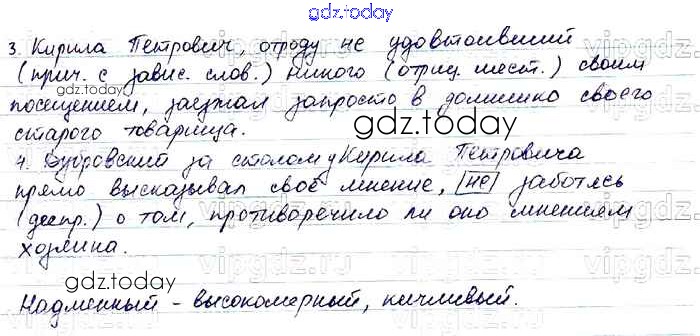 gdz.today
3. Кирила Петрович, отроду не удовтоивший
(прич. с завис. слов.) никого (отриц. мест.) своим
посещением, заезжал запросто в домишко своего
старого товарища.
gdz.today
4. Дубровский за столом у Кирила Петровича
прямо высказывал своё мнение, не заботясь
(деепр.) о том, противоречило ли оно мнениям
хозяина.
gdz.today
Надменный - высокомерный, кичливый.